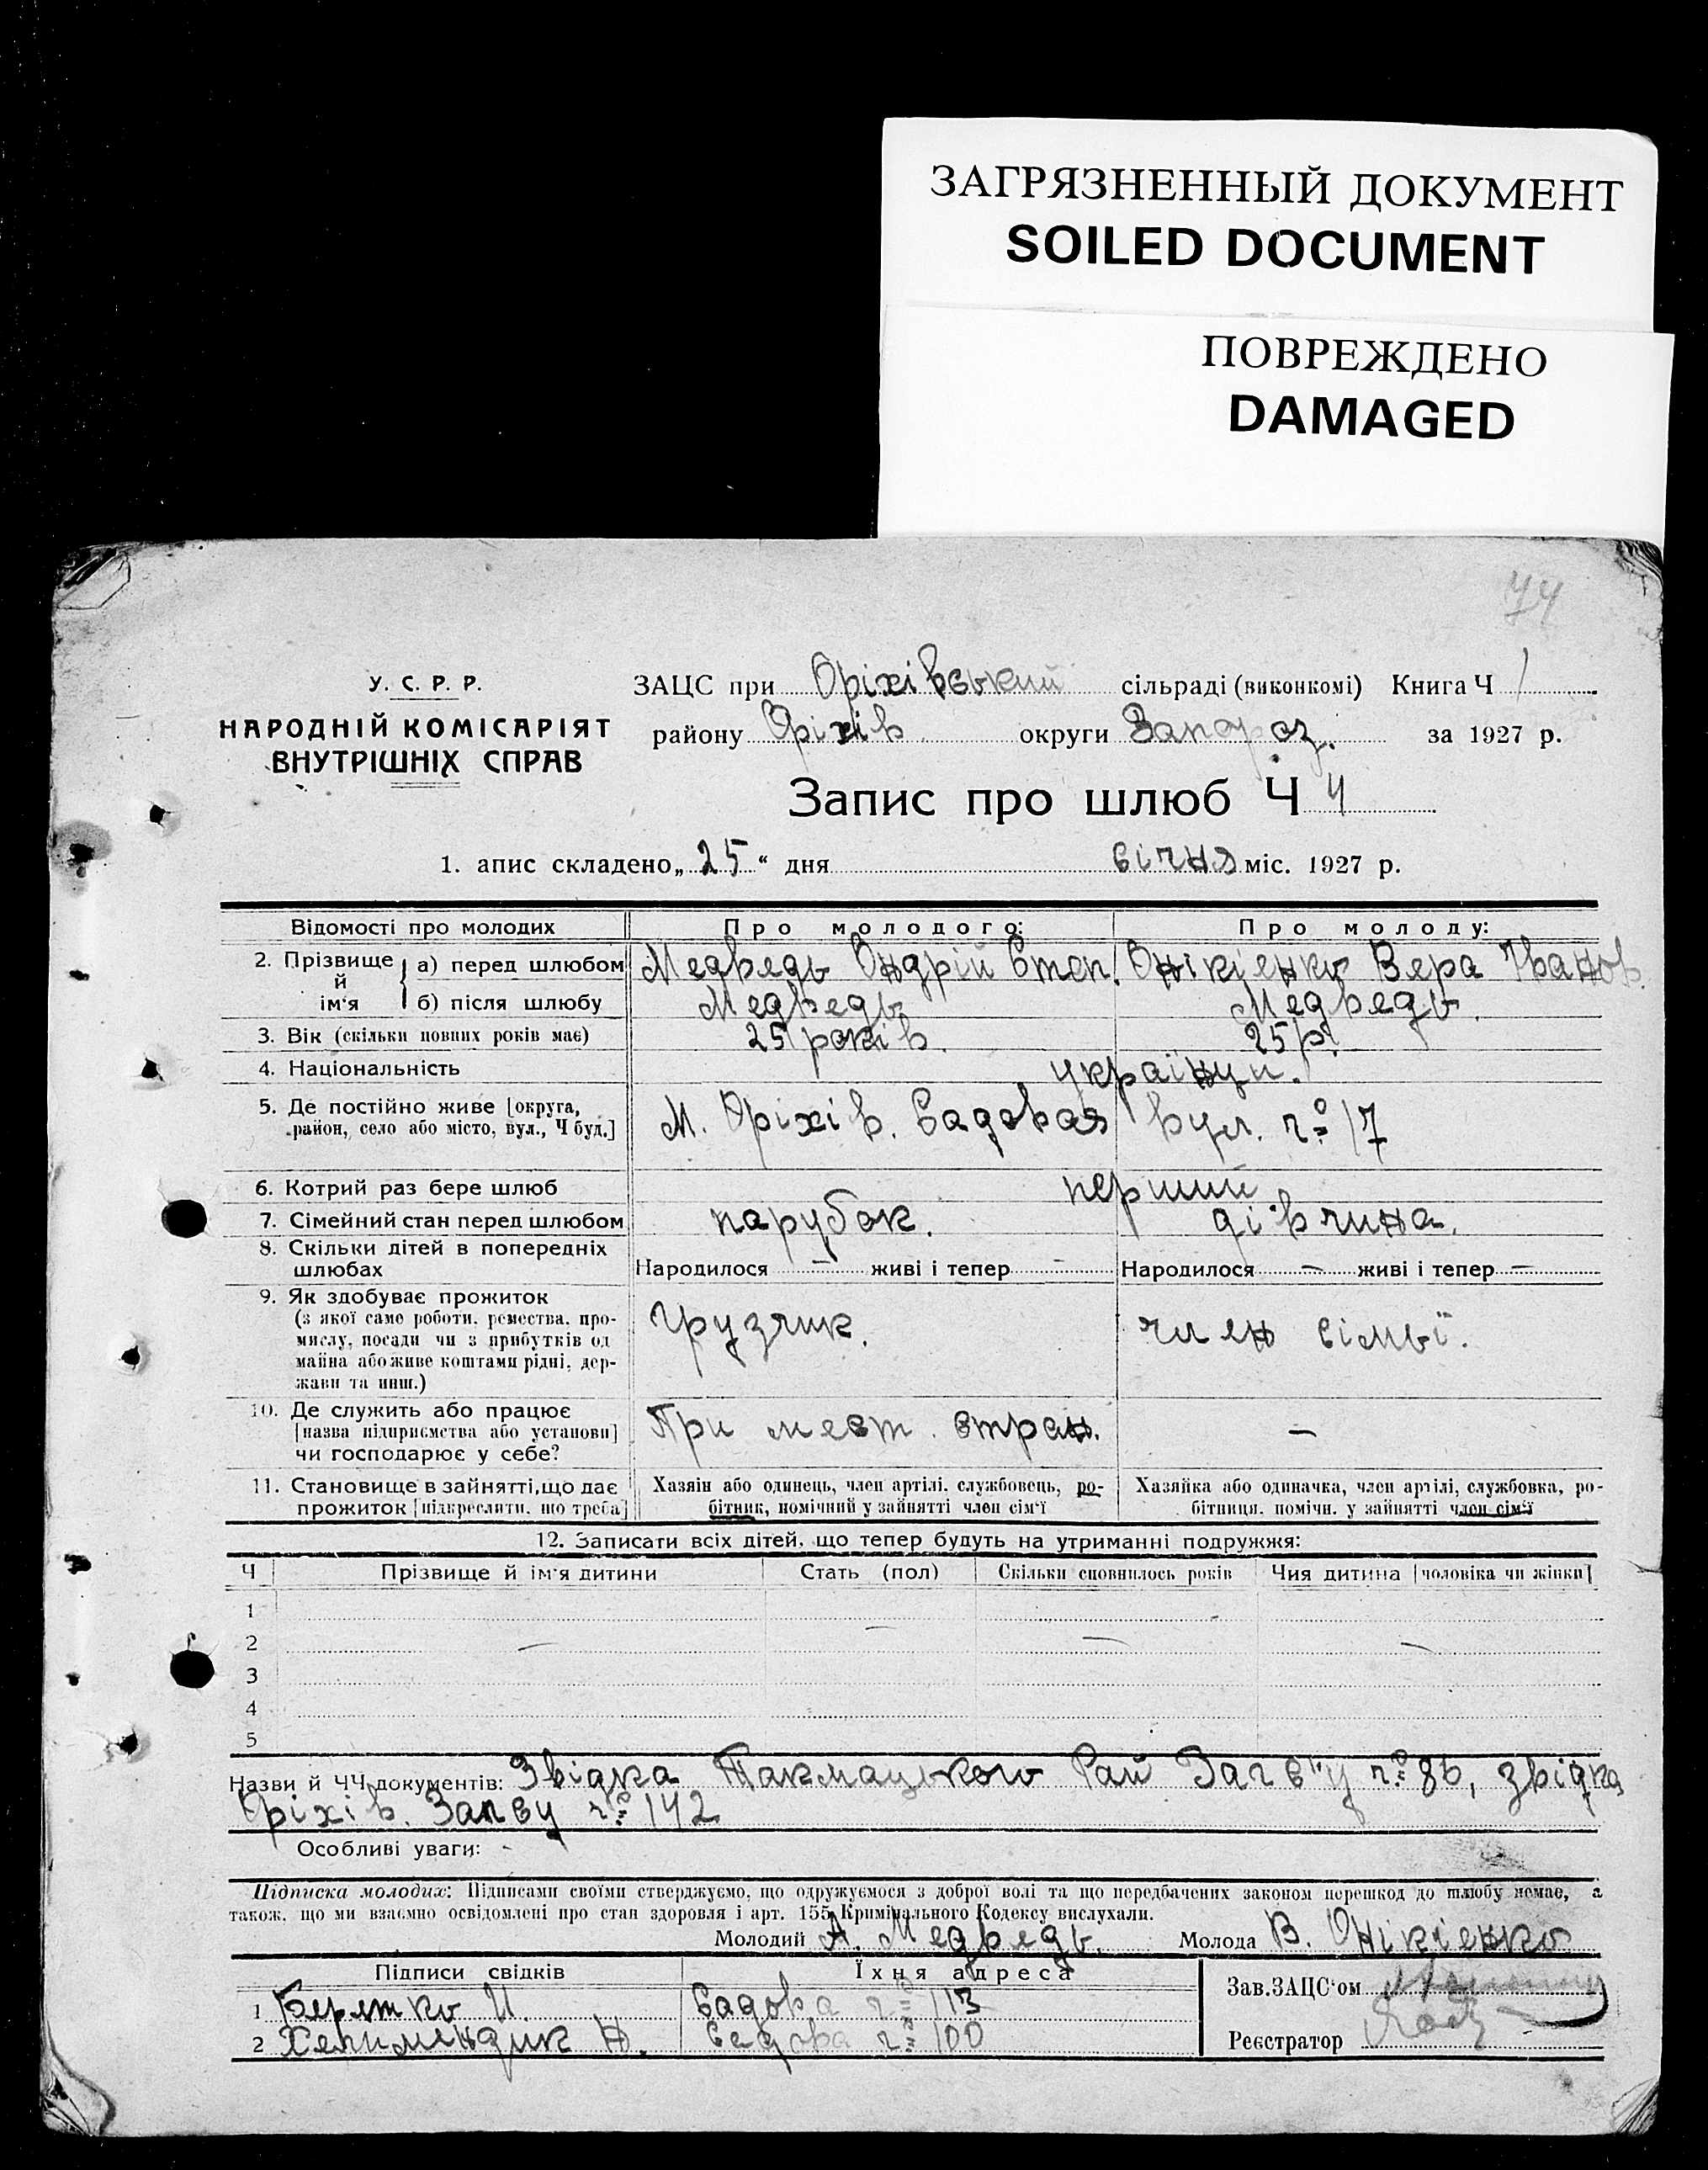 ЗАГРЯЗНЕННЫЙ ДОКУМЕНТ
SOILED DOCUMENT
ПОВРЕЖДЕНО
DAMAGED
74
У. С. Р. Р.
НАРОДНІЙ КОМІСАРІЯТ
ВНУТРІШНІХ СПРАВ
ЗАЦС при Оріхівський сільраді (виконкомі) Книга Ч 1
району Оріхів округи Запороз. за 1927 р.
Запис про шлюб Ч 4
1. апис складено „25“ дня січня міс. 1927 р.
Відомості про молодих Про молодого: Про молоду:
2. Прізвище й ім'я а) перед шлюбом Медведь Ондрій Степ. Онікієнко Вера Іванов.
б) після шлюбу Медведь Медведь.
3. Вік (скільки повних років має) 25 років. 25 р.
4. Національність українци.
5. Де постійно живе [округа, район, село або місто, вул., Ч буд.] М. Оріхів. Садовая вул. № 17
6. Котрий раз бере шлюб перший
7. Сімейний стан перед шлюбом парубок. дівчина.
8. Скільки дітей в попередніх шлюбах Народилося — живі і тепер — Народилося — живі і тепер —
9. Як здобуває прожиток Грузчик. член сімьї.
(з якої саме роботи, ремества, про-
мислу, посади чи з прибутків од
майна або живе коштами рідні, дер-
жави та инш.)
10. Де служить або працює При мест. стран. —
[назва підприємства або установи]
чи господарює у себе?
11. Становище в зайнятті, що дає Хазяін або одинець, член артілі, службовець, ро- Хазяйка або одиначка, член артілі, службовка, ро-
прожиток [підкреслити, що треба] бітник, помічний у зайнятті член сім'ї бітниця, помічн. у зайнятті член сім'ї
12. Записати всіх дітей, що тепер будуть на утриманні подружжя:
Ч Прізвище й ім'я дитини Стать (пол) Скільки сповнилось років Чия дитина [чоловіка чи жінки]
1
2 — — — —
3
4
5
Назви й ЧЧ документів: Звідка Токмацького Рай Загс'у № 86, звідка
Оріхів. № 142
Особливі уваги: -
Підписка молодих: Підписами своїми стверджуємо, що одружуємося з доброї волі та що передбачених законом перешкод до шлюбу немає, а
також, що ми взаємно освідомлені про стан здоровля і арт. 155 Кримінального Кодексу вислухали.
Молодий А. Медведь. Молода В. Онікієнко
Підписи свідків Їхня адреса
1 И. Садова № 113
2 Садова № 100
Зав. ЗАЦС'ом
Реєстратор